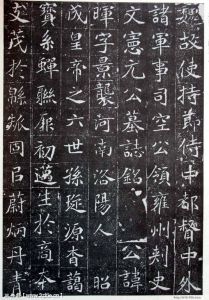 魏故使持節侍中都督中外
諸軍事司空公領雍州刾史
文憲元公墓誌銘 公諱
暉字景襲河南洛陽人昭
成皇帝之六世孫挻源杳藹
寶系蟬聯靡初生於高本
文茂於緜瓞固已蔚炳丹青